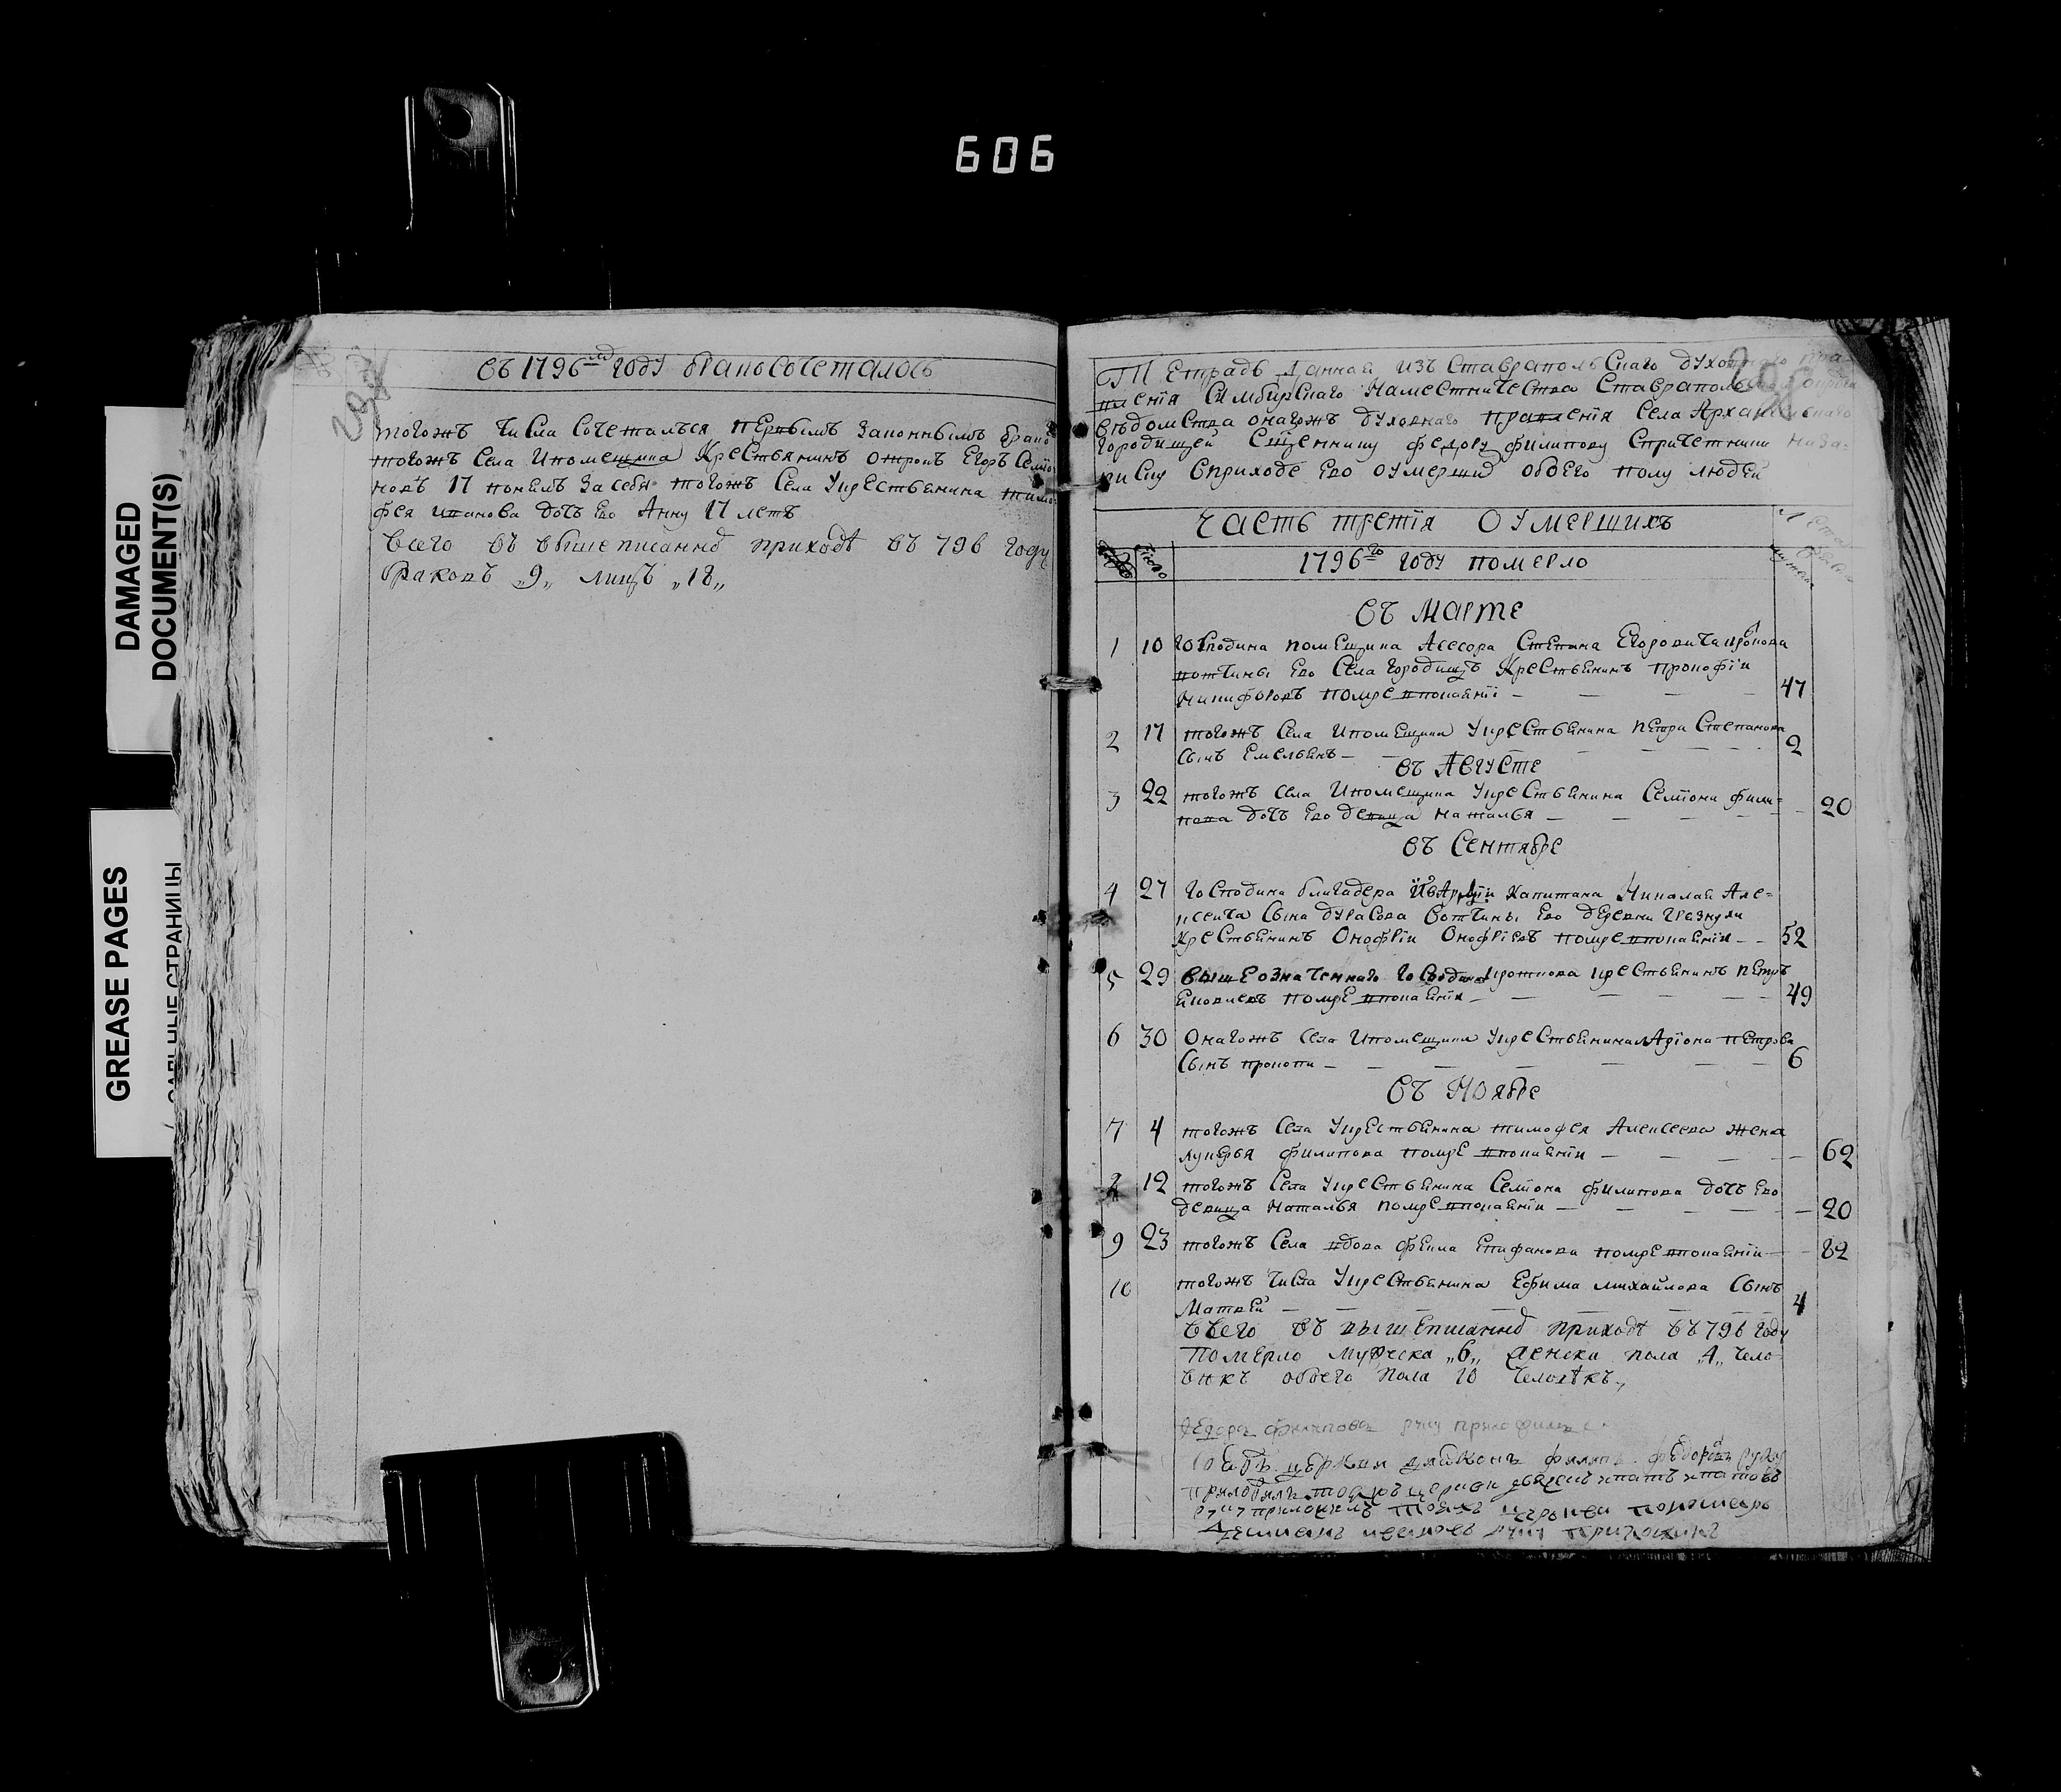 606
DAMAGED
DOCUMENT(S)
GREASE PAGES
САЛЬНЫЕ СТРАНИЦЫ
въ 1796мъ году бракосочеталось
тогожъ числа сочетался первымъ законнымъ брако
тогожъ села ипомещика крестьянинъ отрокъ Егоръ Семio
новъ 17 понелъ за себя тогожъ села укрестьянина тимо
фея иванова дочь Ево Анну 17 летъ
всего въ вышеписанно приходѣ въ 796 году
браковъ „9„ лицъ „18„
Тетрадь данная изъ Ставрапольскаго духовнаго пра-
вления Симбирскаго Наместничества Ставрапольской
вѣдомства онагожъ духовнаго правления села Архангельскаго
городищей Сщеннику федору филипову Спричетники наза-
писку Вприходе Ево оумерши обоего полу людей
Часть третiя Оумершихъ
число
1796го году померло
въ Марте
1 10 Господина помещика Асесора Степана Егоровича кроткова
вотчины Ево Села городищъ крестьянинъ прокофiи
никифоровъ помре впокаянiи — 47
2 17 тогожъ села ипомещика укрестьянина петра Степанова
сынъ Емельянъ — 2
въ Августе
3 22 тогожъ села ипомещика укрестьянина Семiона фили=
пова дочь Ево девица наталья — 20
въ Сентябре
4 27 Господина бригадера Капитана Николая Але=
ксеича сына дурасова вотчины Ево деревни грязнухи
крестьянинъ Онофрiи Онофрiевъ помре впокаянiи — 52
5 29 вышеозначеннаго Господина кроткова крестьянинъ петръ
яковлевъ помре впокаянiи — 49
6 30 Онагожъ села ипомещика укрестьянина лАрiона петрова
сынъ прокопи — 6
въ Ноябре
7 4 тогожъ села укрестьянина тимофея Алексеева жена
лукерья филипова помре впокаянiи — 62
8 12 тогожъ села укрестьянина Семiона филипова дочь Ево
девица наталья помре впокаянiи — 20
9 23 тогожъ села вдова фекла Епифанова помре впокаянiи — 82
10 тогожъ числа укрестьянина Ефима михайлова сынъ
Матвей — 4
всего въ вышеписанно приходѣ въ 796 году
померло мужеска „6„ женска пола „4„ чело
векъ обоего пола 10 человѣкъ„
федоръ филиповъ руку приложилъ
тоежъ церкви диаконъ филипъ федоровъ руку
приложилъ тоежъ церкви
руку приложилъ тоежъ церкви пономарь
ивановъ руку приложилъ